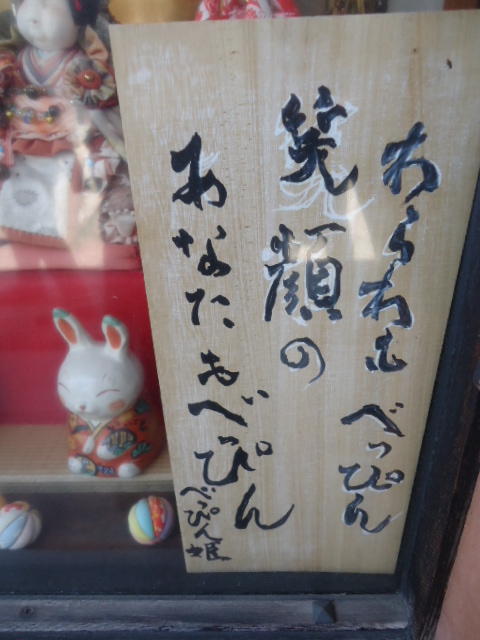 わらわもべっぴん
笑顔の
あなたもべっぴん
べっぴん姫